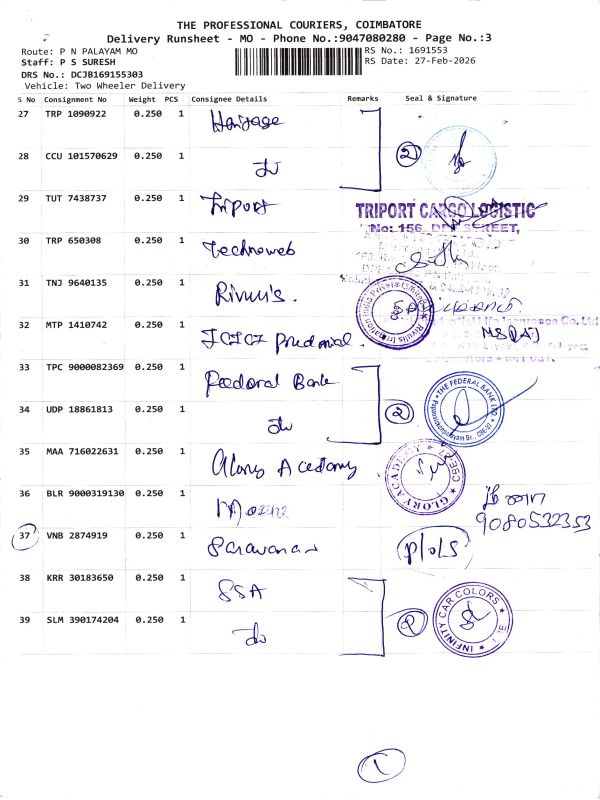 THE PROFESSIONAL COURIERS, COIMBATORE
Delivery Runsheet - MO - Phone No.:9047080280 - Page No.:3
Route: P N PALAYAM MO
RS No.: 1691553
Staff: P S SURESH
RS Date: 27-Feb-2026
DRS No.: DCJB169155303
Vehicle: Two Wheeler Delivery
S No Consignment No Weight PCS Consignee Details Remarks Seal & Signature
27 TRP 1090922 0.250 1
28 CCU 101570629 0.250 1 do 2
29 TUT 7438737 0.250 1 Triport
TRIPORT CARGO LOGISTIC
No: 156, STREET,
30 TRP 650308 0.250 1 Technoweb
31 TNJ 9640135 0.250 1 Rivuli's.
32 MTP 1410742 0.250 1 ICICI Prudential.
Insurance Co. Ltd
33 TPC 9000082369 0.250 1 Fedoral Bank
THE FEDERAL BANK LTD.
34 UDP 18861813 0.250 1 do 2
35 MAA 716022631 0.250 1 Glory Acedamy
GLORY ACADEMY
36 BLR 9000319130 0.250 1
9080532353
37 VNB 2874919 0.250 1 Saravanan P/O/S
38 KRR 30183650 0.250 1 SSA
INFINITY CAR COLORS
39 SLM 390174204 0.250 1 do 2
1